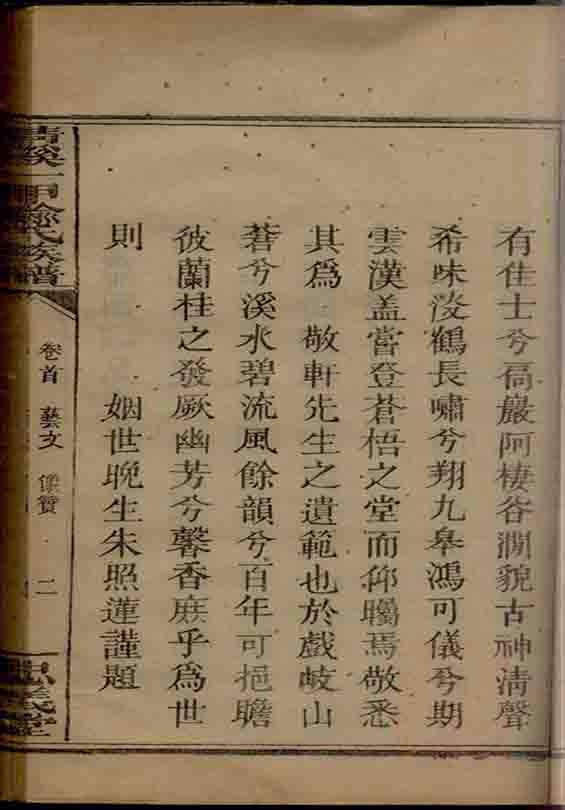 有佳士兮𫁂巖阿棲谷澗貌古神淸聲
希味淡鶴長嘯兮翔九皋鴻可儀兮期
雲漢盖嘗登蒼梧之堂而仰矚焉敬悉
其爲 敬軒先生之遺範也於戲岐山
蒼兮溪水碧流風餘韻兮百年可挹瞻
彼蘭桂之發厥幽芳兮馨香庶乎爲世
則 姻世晚生朱照蓮謹題
氏族譜
卷首 藝文 像贊 二